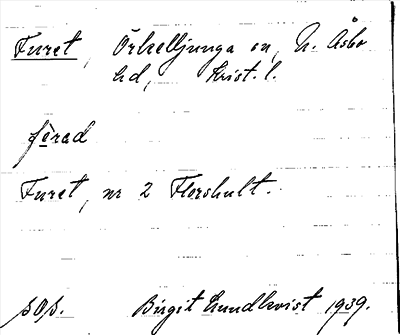 Furet, Örkelljunga sn, N. Åsbo
hd, Krist. l.
fèrad
Furet, nr 2 Flershult.
sOs. Birgit Lundkvist 1939.